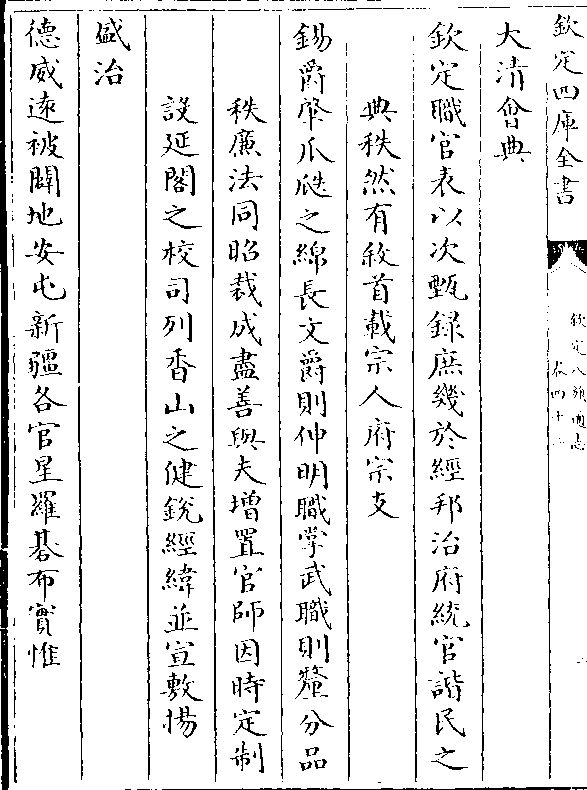 欽定四庫全書
欽定八旗通志
卷四十
大清會典
欽定職官表以次甄録庶幾於經邦治府統官諧民之
典秩然有敘首載宗人府宗支
錫爵肇瓜瓞之綿長文爵則伸明職掌武職則釐分品
秩廉法同昭裁成盡善與夫增置官師因時定制
設延閣之校司列香山之健銳經緯並宣敷揚
盛治
德威遠被闢地安屯新疆各官星羅碁布實惟